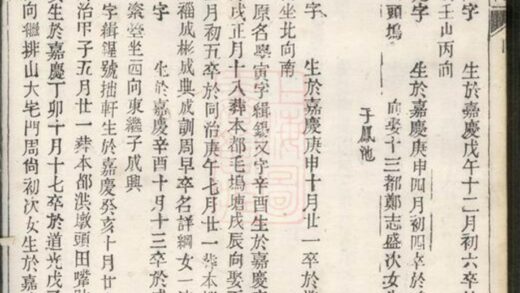 字 生於嘉慶戊午十二月初六卒
壬山丙向
字 生於嘉慶庚申四月初四卒於
頭塢 前娶十三都鄭志盛次女生
子鳳池
字 生於嘉慶庚申十月廿一卒於
坐北向南
原名學寅字緝錫又字辛酉生於嘉慶
戌正月十八葬本都毛塢塘戊辰向娶
月初五卒於同治庚午七月廿一葬本
福成彬成典成訓周早卒名詳綱女一
字 生於嘉慶辛酉十月十三卒於
坐西向東繼子成興
字緝錕號拙軒生於嘉慶癸亥十月廿
治甲子五月廿一葬本都洪墩頭田嘴
生於嘉慶丁卯十月十七卒於道光戊
向繼排山大宅門周尚初次女生於嘉